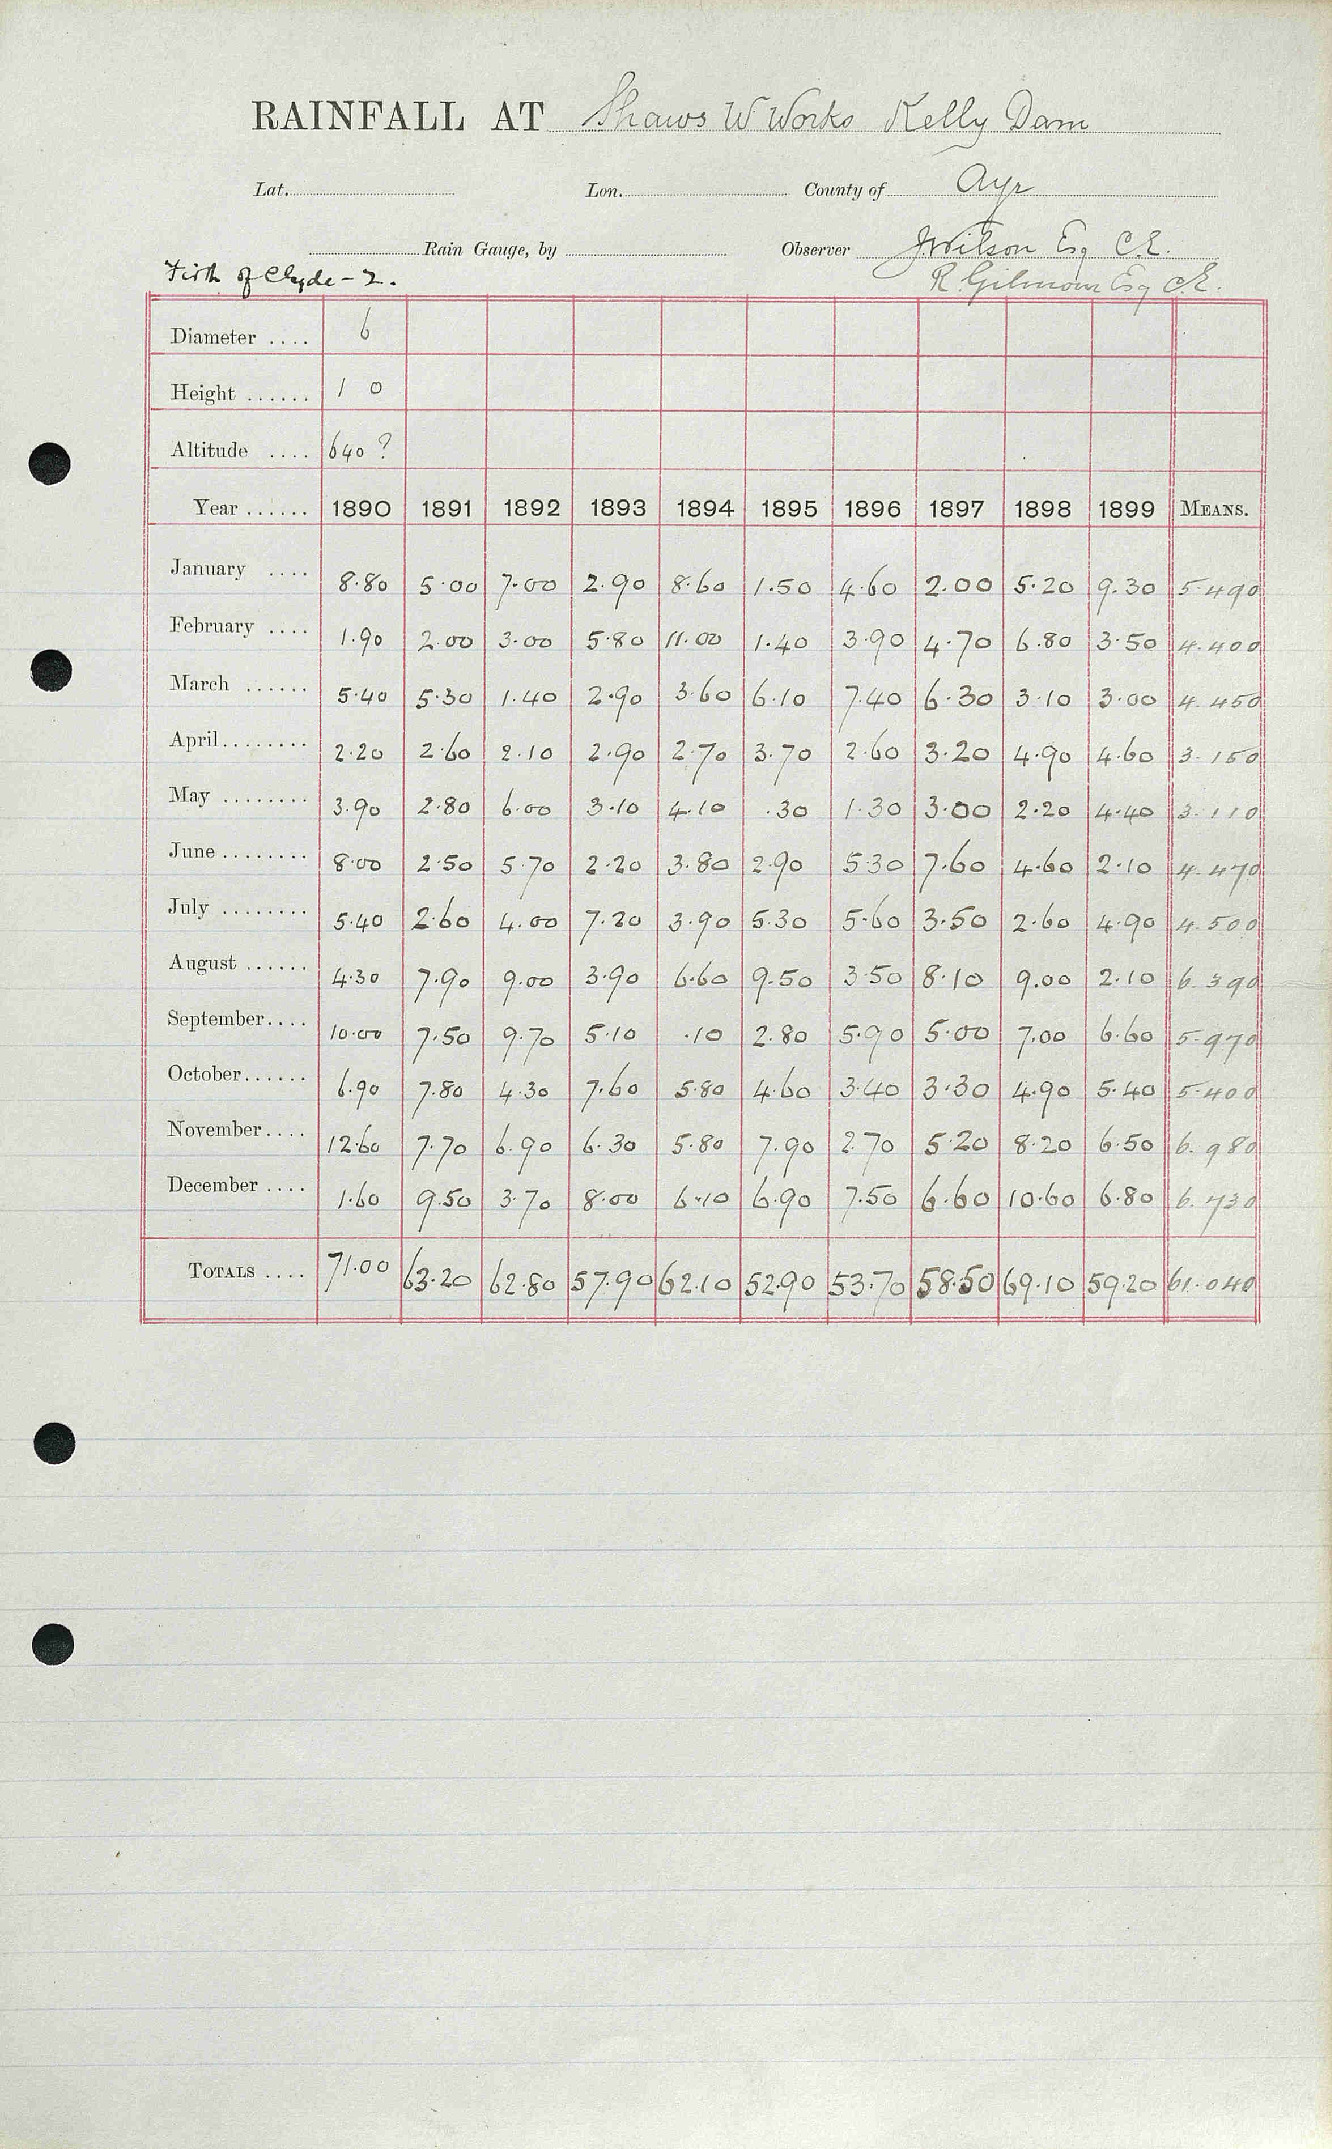 RAINFALL AT Shaws W Works Kelly Dam
Lat. Lon. County of Ayr
Rain Gauge, by Observer J Wilson Esq C.E.
Firth of Clyde - 2. R. Gilmour Esq C.E.
Diameter .... 6
Height ...... 1 0
Altitude .... 640 ?
Year ...... 1890 1891 1892 1893 1894 1895 1896 1897 1898 1899 MEANS.
January .... 8.80 5.00 7.00 2.90 8.60 1.50 4.60 2.00 5.20 9.30 5.490
February .... 1.90 2.00 3.00 5.80 11.00 1.40 3.90 4.70 6.80 3.50 4.400
March ...... 5.40 5.30 1.40 2.90 3.60 6.10 7.40 6.30 3.10 3.00 4.450
April ........ 2.20 2.60 2.10 2.90 2.70 3.70 2.60 3.20 4.90 4.60 3.150
May ........ 3.90 2.80 6.00 3.10 4.10 .30 1.30 3.00 2.20 4.40 3.110
June ........ 8.00 2.50 5.70 2.20 3.80 2.90 5.30 7.60 4.60 2.10 4.470
July ........ 5.40 2.60 4.00 7.20 3.90 5.30 5.60 3.50 2.60 4.90 4.500
August ...... 4.30 7.90 9.00 3.90 6.60 9.50 3.50 8.10 9.00 2.10 6.390
September .... 10.00 7.50 9.70 5.10 .10 2.80 5.90 5.00 7.00 6.60 5.970
October ...... 6.90 7.80 4.30 7.60 5.80 4.60 3.40 3.30 4.90 5.40 5.400
November .... 12.60 7.70 6.90 6.30 5.80 7.90 2.70 5.20 8.20 6.50 6.980
December .... 1.60 9.50 3.70 8.00 6.10 6.90 7.50 6.60 10.60 6.80 6.730
TOTALS .... 71.00 63.20 62.80 57.90 62.10 52.90 53.70 58.50 69.10 59.20 61.040